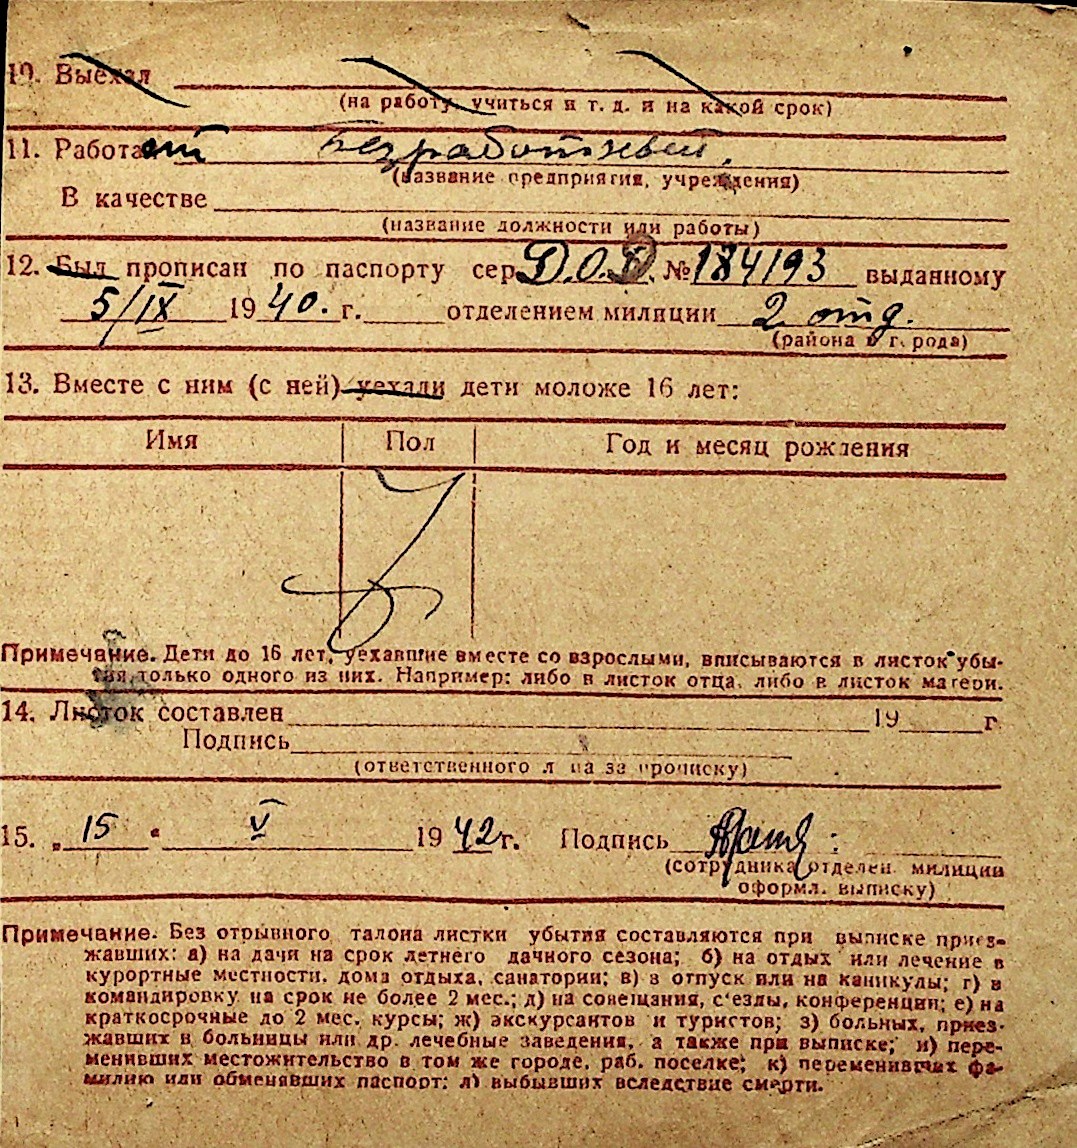 10. Выехал
(на работу, учиться и т. д. и на какой срок)
11. Работает безработный.
(название предприятия, учреждения)
В качестве
(название должности или работы)
12. Был прописан по паспорту сер. Д.О. № 184193 выданному
5/IX 1940. г. отделением милиции 2 отд.
(района в г. рода)
13. Вместе с ним (с ней) уехали дети моложе 16 лет:
Имя Пол Год и месяц рождения
Примечание. Дети до 16 лет, уехавшие вместе со взрослыми, вписываются в листок убы-
тия только одного из них. Например: либо в листок отца, либо в листок матери.
14. Листок составлен 19 г
Подпись
(ответственного л ца за прописку)
15. „15" V 1942 г. Подпись
(сотрудника отделен. милиции
оформл. выписку)
Примечание. Без отрывного талона листки убытия составляются при выписке приез-
жавших: а) на дачи на срок летнего дачного сезона; б) на отдых или лечение в
курортные местности, дома отдыха, санатории; в) в отпуск или на каникулы; г) в
командировку на срок не более 2 мес.; д) на совещания, с'езды, конференции; е) на
краткосрочные до 2 мес. курсы; ж) экскурсантов и туристов; з) больных, приез-
жавших в больницы или др. лечебные заведения, а также при выписке; и) пере-
менивших местожительство в том же городе, раб. поселке; к) переменивших фа-
милию или обменявших паспорт; л) выбывших вследствие смерти.